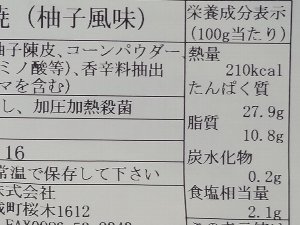 焼（柚子風味）
柚子陳皮、コーンパウダー、
ミノ酸等）、香辛料抽出
マを含む）
し、加圧加熱殺菌
16
常温で保存して下さい
株式会社
町桜木1612
栄養成分表示
（100g当たり）
熱量
210kcal
たんぱく質
27.9g
脂質
10.8g
炭水化物
0.2g
食塩相当量
2.1g